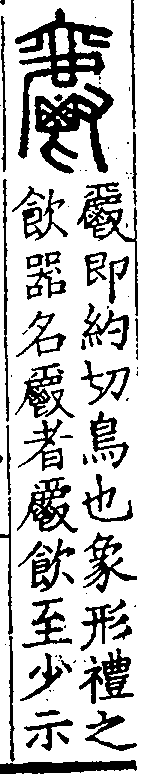 即約切鳥也象形禮之
飲器名者飲至少示